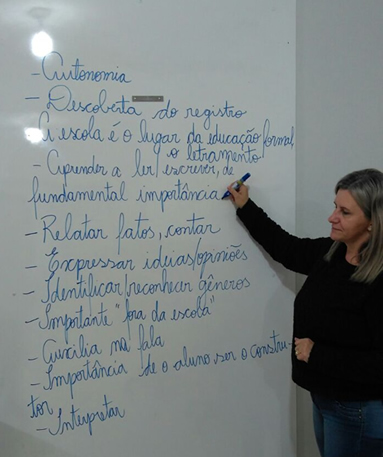 - Autonomia
- Descoberta do registro
A escola é o lugar da educação formal,
o letramento
- Aprender a ler, escrever, de
fundamental importância
- Relatar fatos, contar
- Expressar ideias/opiniões
- Identificar/reconhecer gêneros
- Importante "fora da escola"
- Auxilia na fala
- Importância de o aluno ser o constru-
tor
- Interpretar